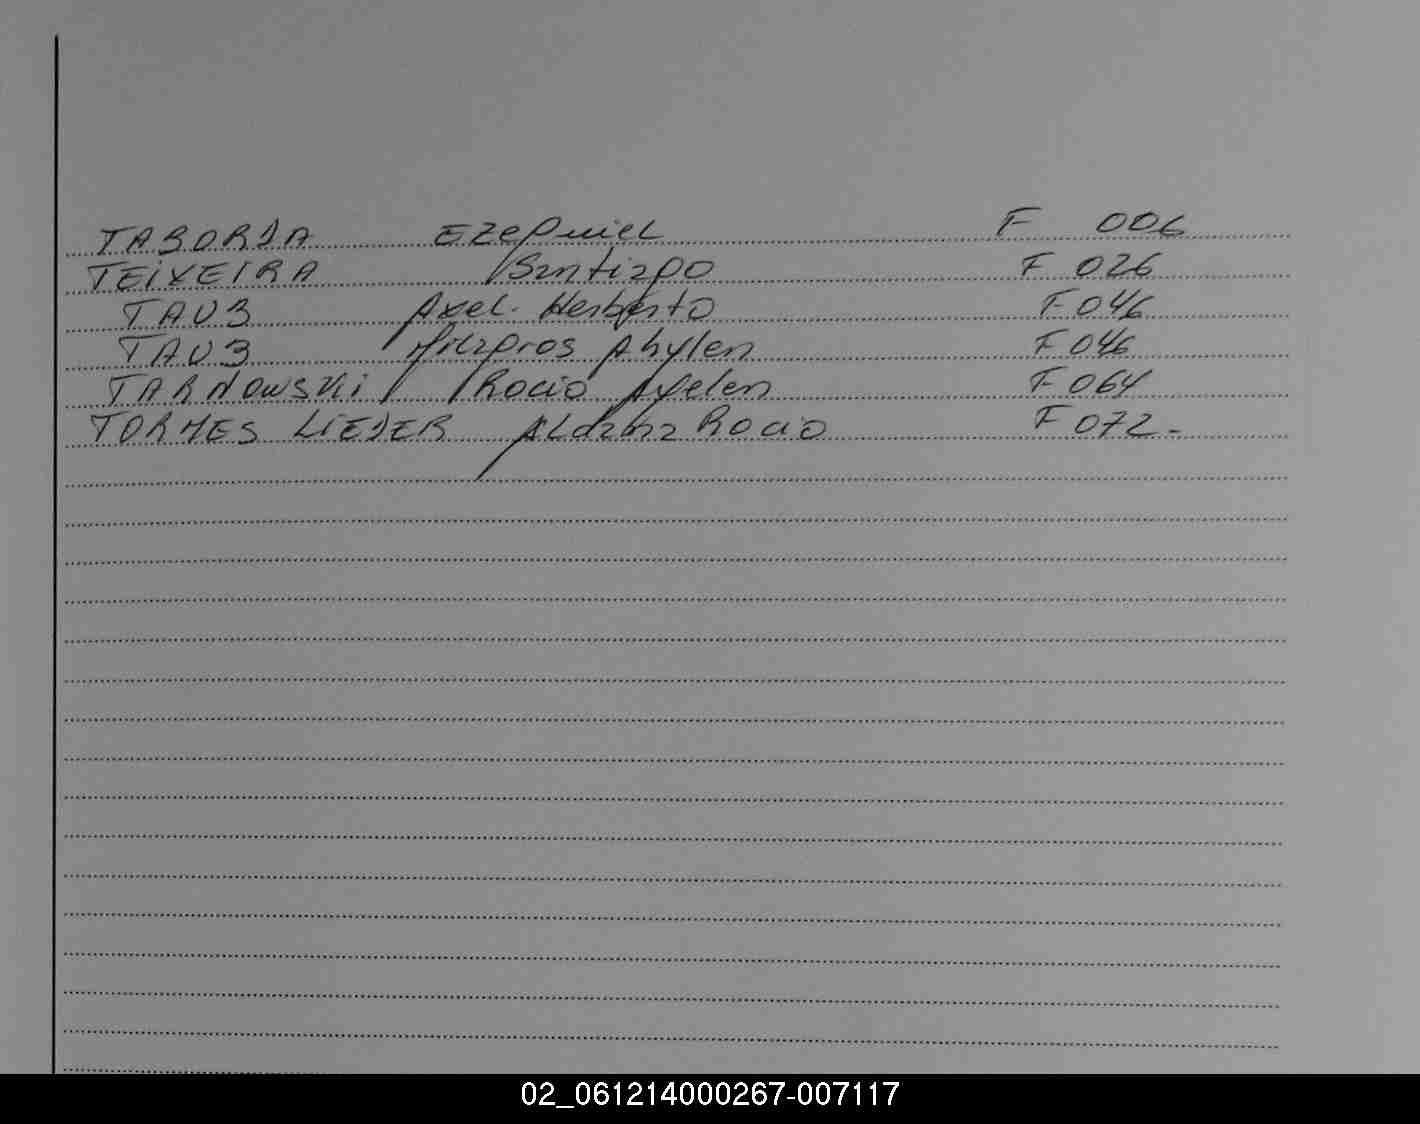 TABORDA Ezequiel F 006
TEIXEIRA Santiago F 026
TAUB Axel Herberto F 046
TAUB Milagros Ahylen F 046
TARNOWSKI Rocio Ayelen F 064
TORMES LIEDER Aldana Rocio F 072.-
02_061214000267-007117